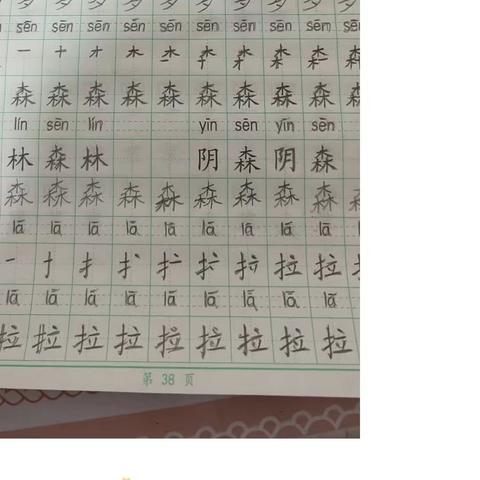 sēn sēn sēn sēn sēn sēn sēn sēn sēn
一 十 才 木
森 森 森 森 森 森 森 森 森 森
lín sēn lín yīn sēn yīn sēn
林 森 林 阴 森 阴 森
森 森 森 森 森 森 森 森 森 森
lā lā lā lā lā lā lā lā lā
拉 拉
lā lā lā lā lā lā lā lā lā
拉 拉 拉 拉 拉 拉 拉 拉 拉
第 38 页